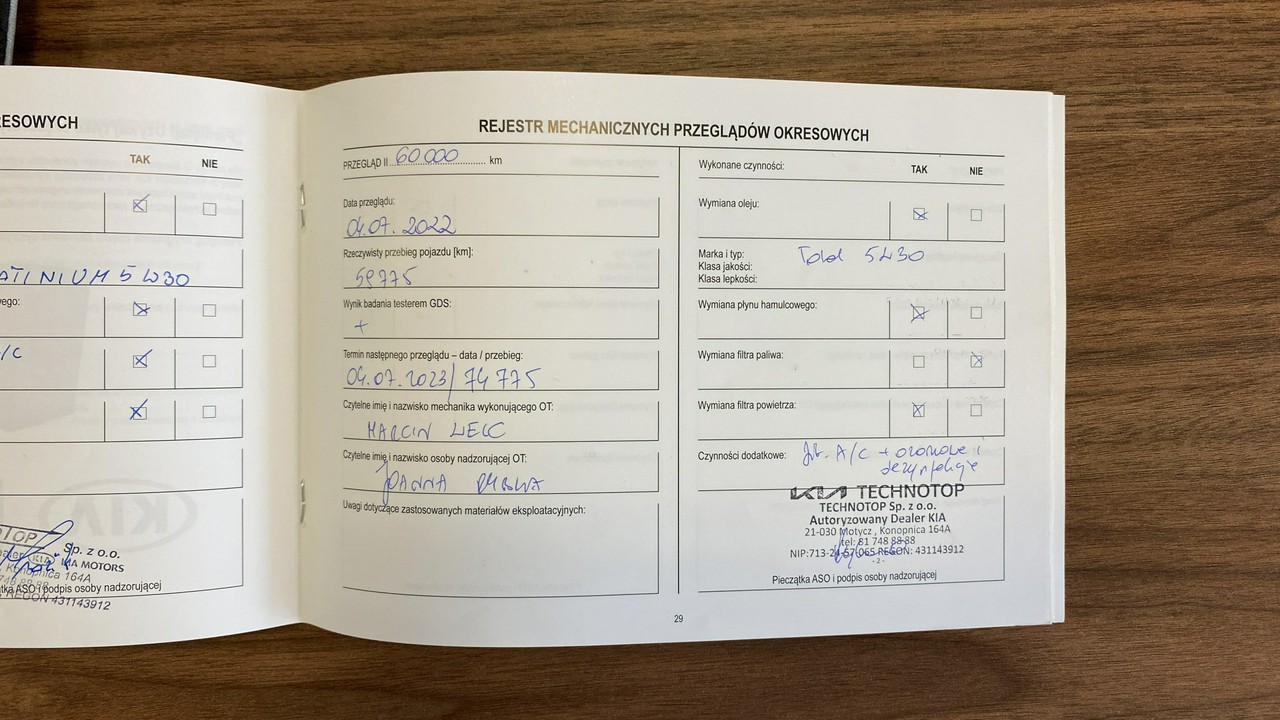 RESOWYCH
TAK NIE
ATINIUM 5W30
wego:
A/C
TOP Sp. z o.o.
KIA MOTORS
Konopnica 164A
Pieczątka ASO i podpis osoby nadzorującej
REGON 431143912
REJESTR MECHANICZNYCH PRZEGLĄDÓW OKRESOWYCH
PRZEGLĄD II 60 000 km
Data przeglądu:
04.07.2022
Rzeczywisty przebieg pojazdu [km]:
59775
Wynik badania testerem GDS:
+
Termin następnego przeglądu – data / przebieg:
04.07.2023/ 74 775
Czytelne imię i nazwisko mechanika wykonującego OT:
MARCIN WELC
Czytelne imię i nazwisko osoby nadzorującej OT:
JOANNA
Uwagi dotyczące zastosowanych materiałów eksploatacyjnych:
Wykonane czynności: TAK NIE
Wymiana oleju:
Marka i typ: Total 5W30
Klasa jakości:
Klasa lepkości:
Wymiana płynu hamulcowego:
Wymiana filtra paliwa:
Wymiana filtra powietrza:
Czynności dodatkowe: A/C +
KIA TECHNOTOP
TECHNOTOP Sp. z o.o.
Autoryzowany Dealer KIA
21-030 Motycz , Konopnica 164A
tel: 81 748 88 88
NIP:713-28-57-065 REGON: 431143912
- 2 -
Pieczątka ASO i podpis osoby nadzorującej
29